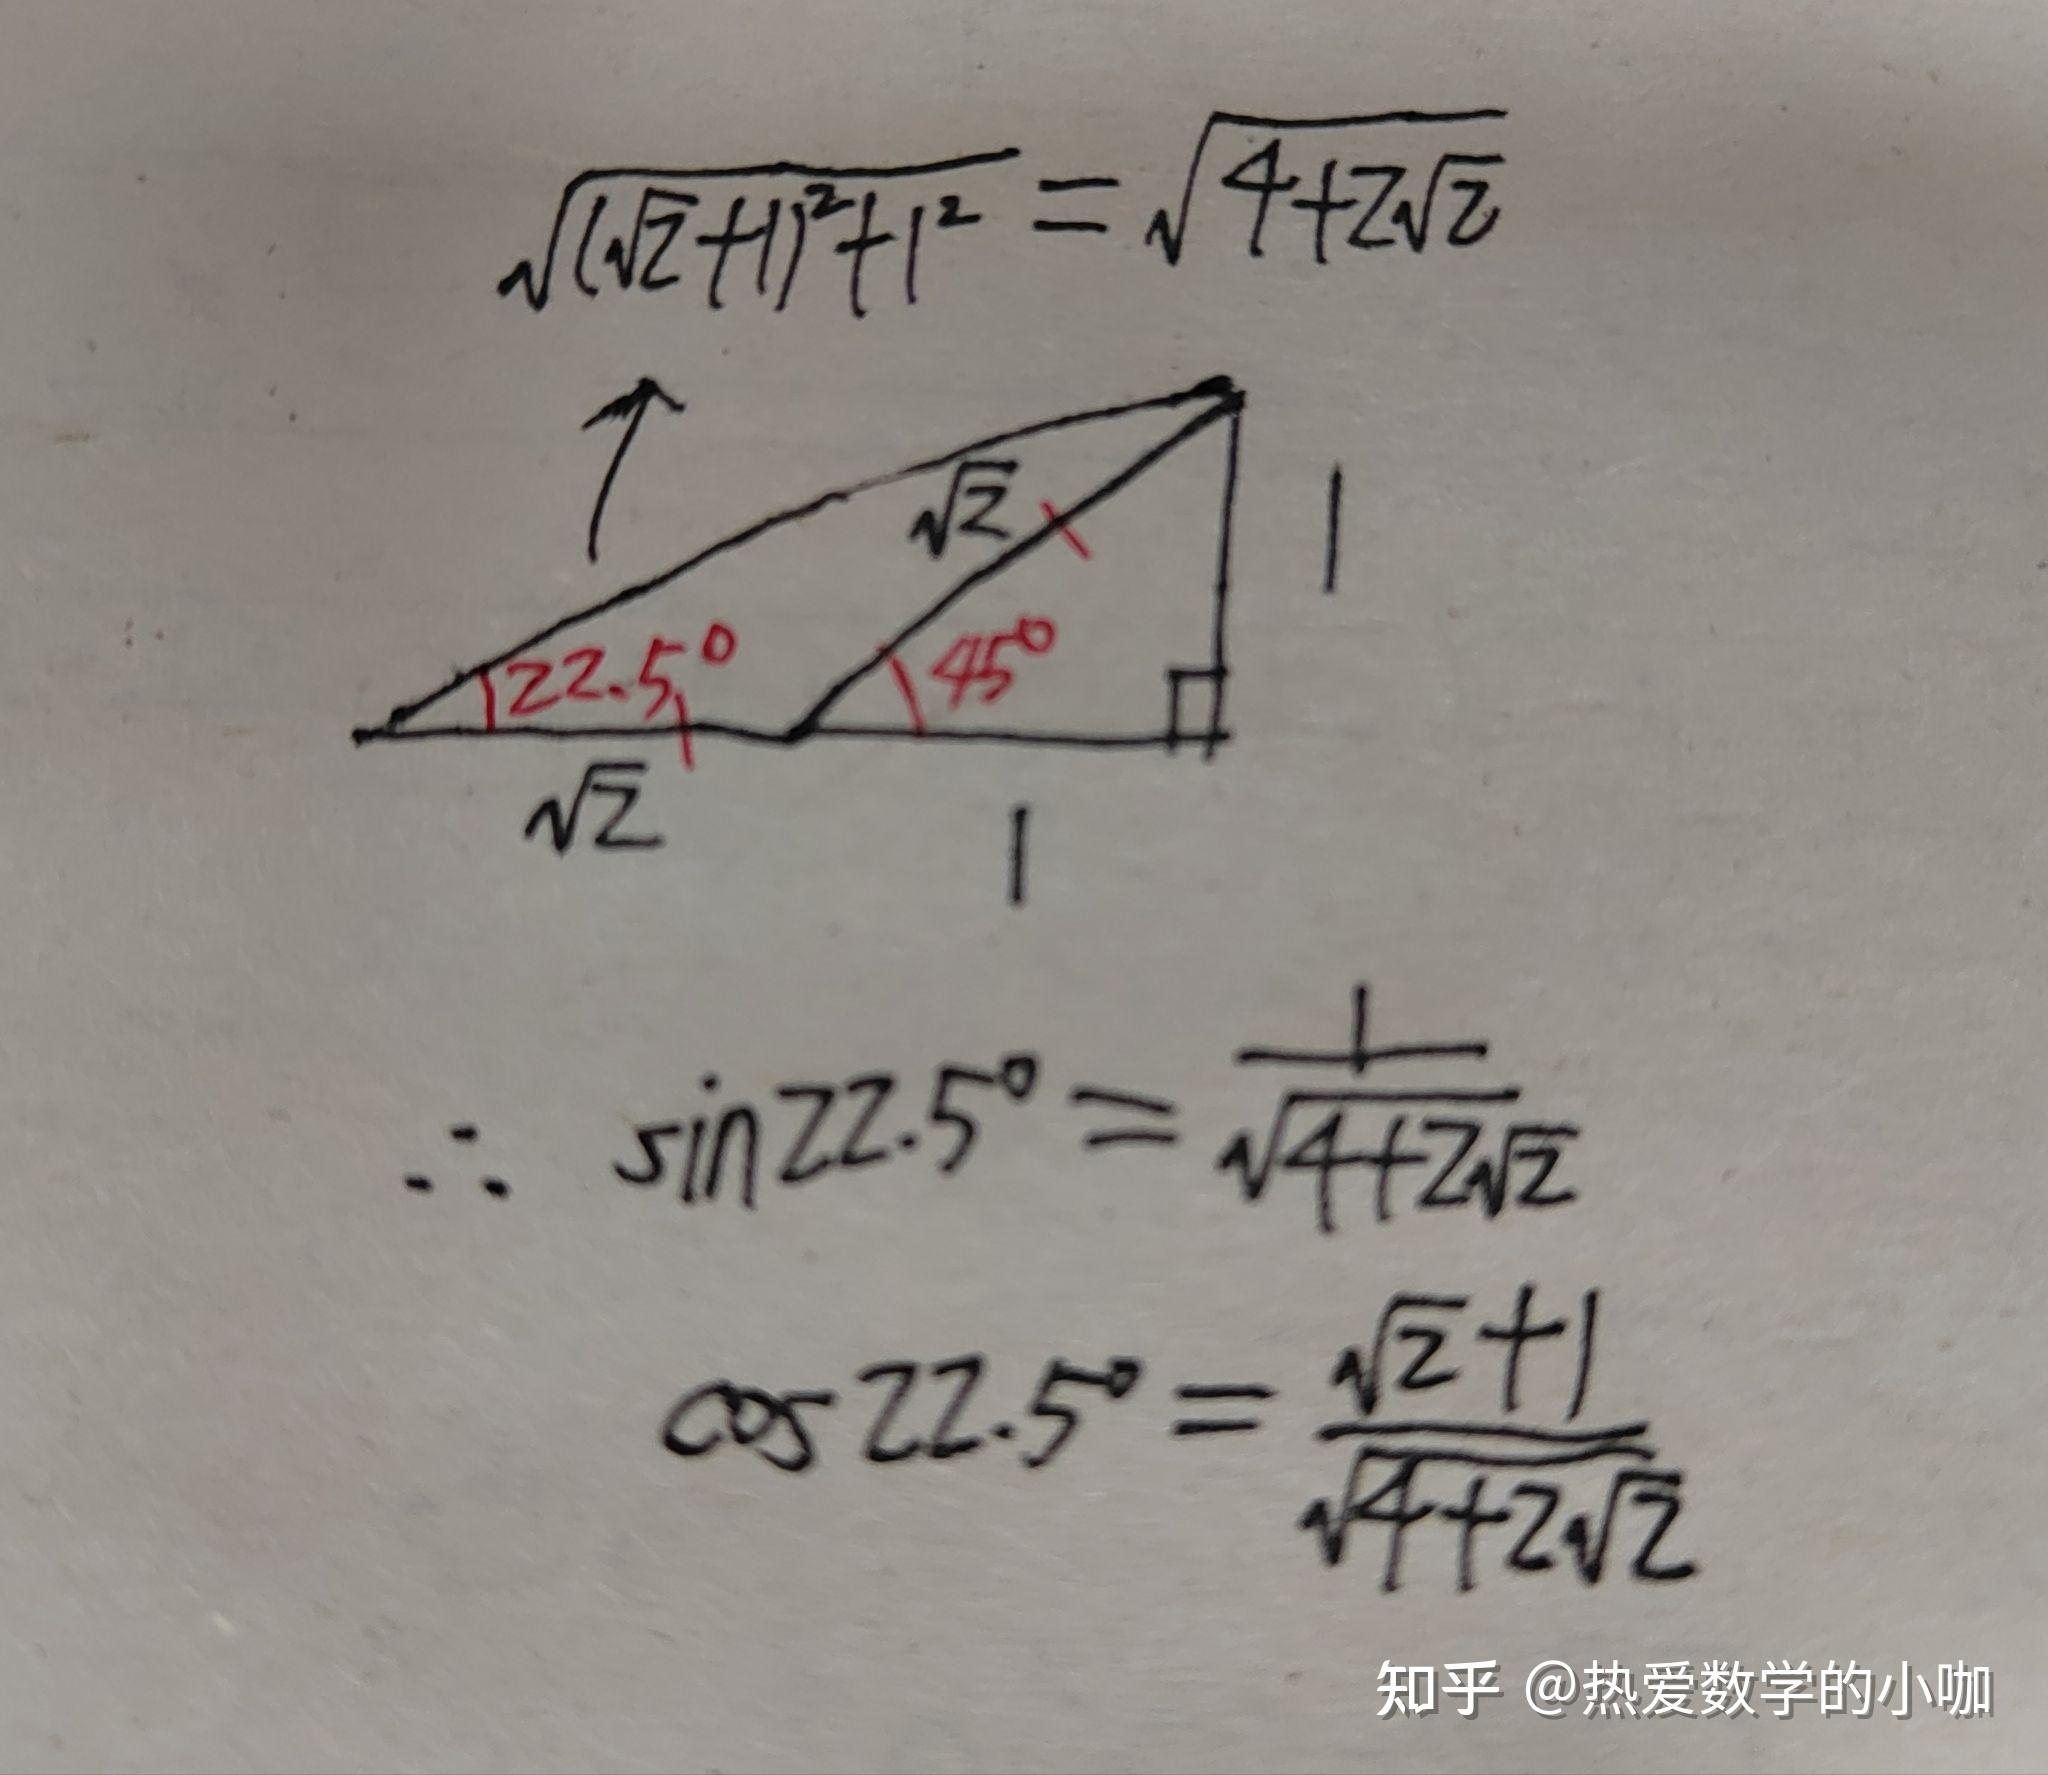 √((√2+1)²+1²) = √(4+2√2)
√2
1
22.5°
45°
√2
1
∴ sin22.5° = 1/√(4+2√2)
cos22.5° = (√2+1)/√(4+2√2)
知乎 @热爱数学的小咖